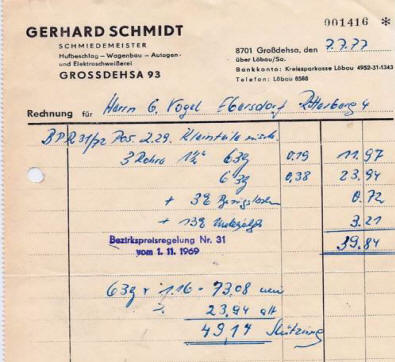 001416 *
GERHARD SCHMIDT
SCHMIEDEMEISTER
Hufbeschlag – Wagenbau – Autogen-
und Elektroschweißerei
GROSSDEHSA 93
8701 Großdehsa, den 7.7.77
über Löbau/Sa.
Bankkonto: Kreissparkasse Löbau 4952-31-1343
Telefon: Löbau 8586
Rechnung für Herrn G. Vogel Ebersdorf 4
BPR 31/72 Pos. 2.29. Kleinteile
3 Rohre 1½" 63g 0,19 11.97
63g 0,38 23.94
+ 3% 0.72
+ 13% 3.21
39.84
Bezirkspreisregelung Nr. 31
vom 1. 11. 1969
63g x 1.16 = 73.08 neu
23.94 alt
49.14